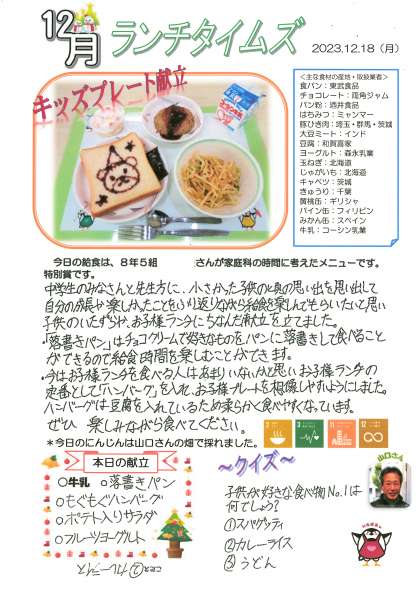 12月 ランチタイムズ
2023.12.18（月）
キッズプレート献立
＜主な食材の産地・取扱業者＞
食パン：東武食品
チョコレート：両角ジャム
パン粉：酒井食品
はちみつ：ミャンマー
豚ひき肉：埼玉・群馬・茨城
大豆ミート：インド
豆腐：和賀喜家
ヨーグルト：森永乳業
玉ねぎ：北海道
じゃがいも：北海道
キャベツ：茨城
きゅうり：千葉
黄桃缶：ギリシャ
パイン缶：フィリピン
みかん缶：スペイン
牛乳：コーシン乳業
今日の給食は、8年5組 さんが家庭科の時間に考えたメニューです。
特別賞です。
中学生のみなさんと先生方に、小さかった子供の頃の思い出を思い出して
自分の成長や楽しかったことをふり返りながら給食を楽しんでもらいたいと思い
子供のいたずらや、お子様ランチにちなんだ献立を立てました。
「落書きパン」はチョコクリームで好きなものをパンに落書きして食べること
ができるので給食時間を楽しむことができます。
・今はお子様ランチを食べる人はあまりいないかと思いお子様ランチの
定番として「ハンバーグ」を入れ、お子様プレートを想像しやすいようにしました。
ハンバーグは豆腐を入れているため柔らかく食べやすくなっています。
ぜひ 楽しみながら食べてください。
＊今日のにんじんは山口さんの畑で採れました。
本日の献立
○牛乳 ○落書きパン
○もぐもぐハンバーグ
○ポテト入りサラダ
○フルーツヨーグルト
～クイズ～
子供が好きな食べ物No.1は
何でしょう?
①スパゲッティ
②カレーライス
③うどん
山口さん
こたえ ②カレーライス